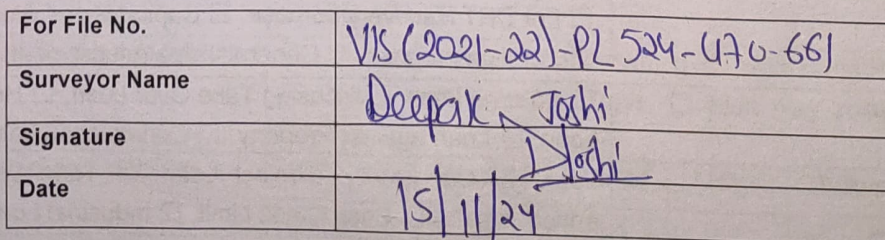 For File No. VIS (2021-22)-PL 524-470-661
Surveyor Name Deepak Joshi
Signature DJoshi
Date 15/11/24